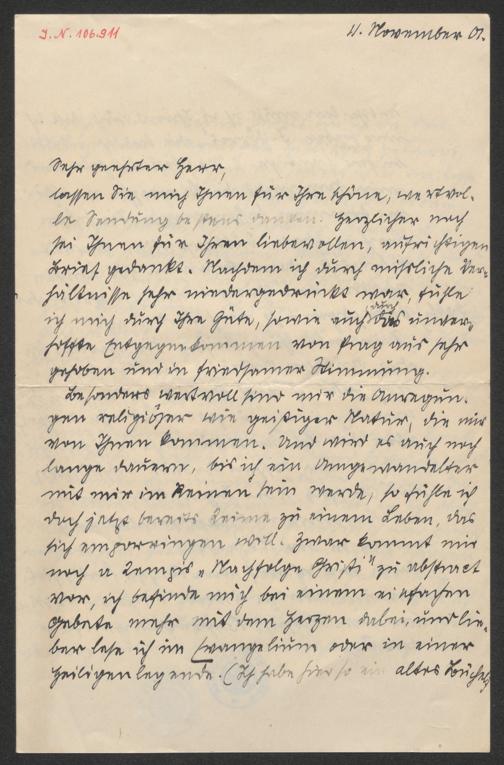 J. N. 106.911
11. November 01.
Sehr geehrter Herr,
lassen Sie mich Ihnen für Ihre schöne, wertvol-
le Sendung bestens danken. Herzlicher noch
sei Ihnen für Ihren liebevollen, aufrichtigen
Brief gedankt. Nachdem ich durch missliche Ver-
hältnisse sehr niedergedrückt war, fühle
ich mich durch Ihre Güte, sowie auch durch das unver-
hoffte Entgegenkommen von Prag aus sehr
gehoben und in friedsamer Stimmung.
Besonders wertvoll sind mir die Anregun-
gen religiöser wie geistiger Natur, die mir
von Ihnen kommen. Und wird es auch noch
lange dauern, bis ich ein Umgewandelter
mit mir im Reinen sein werde, so fühle ich
doch jetzt bereits Keime zu einem Leben, das
sich emporringen will. Zwar kommt mir
noch a Kempis „Nachfolge Christi“ zu abstract
vor, ich befinde mich bei einem einfachen
Gebete mehr mit dem Herzen dabei, und lie-
ber lese ich im Evangelium oder in einer
Heiligenlegende. (Ich habe hier so ein altes Büchel